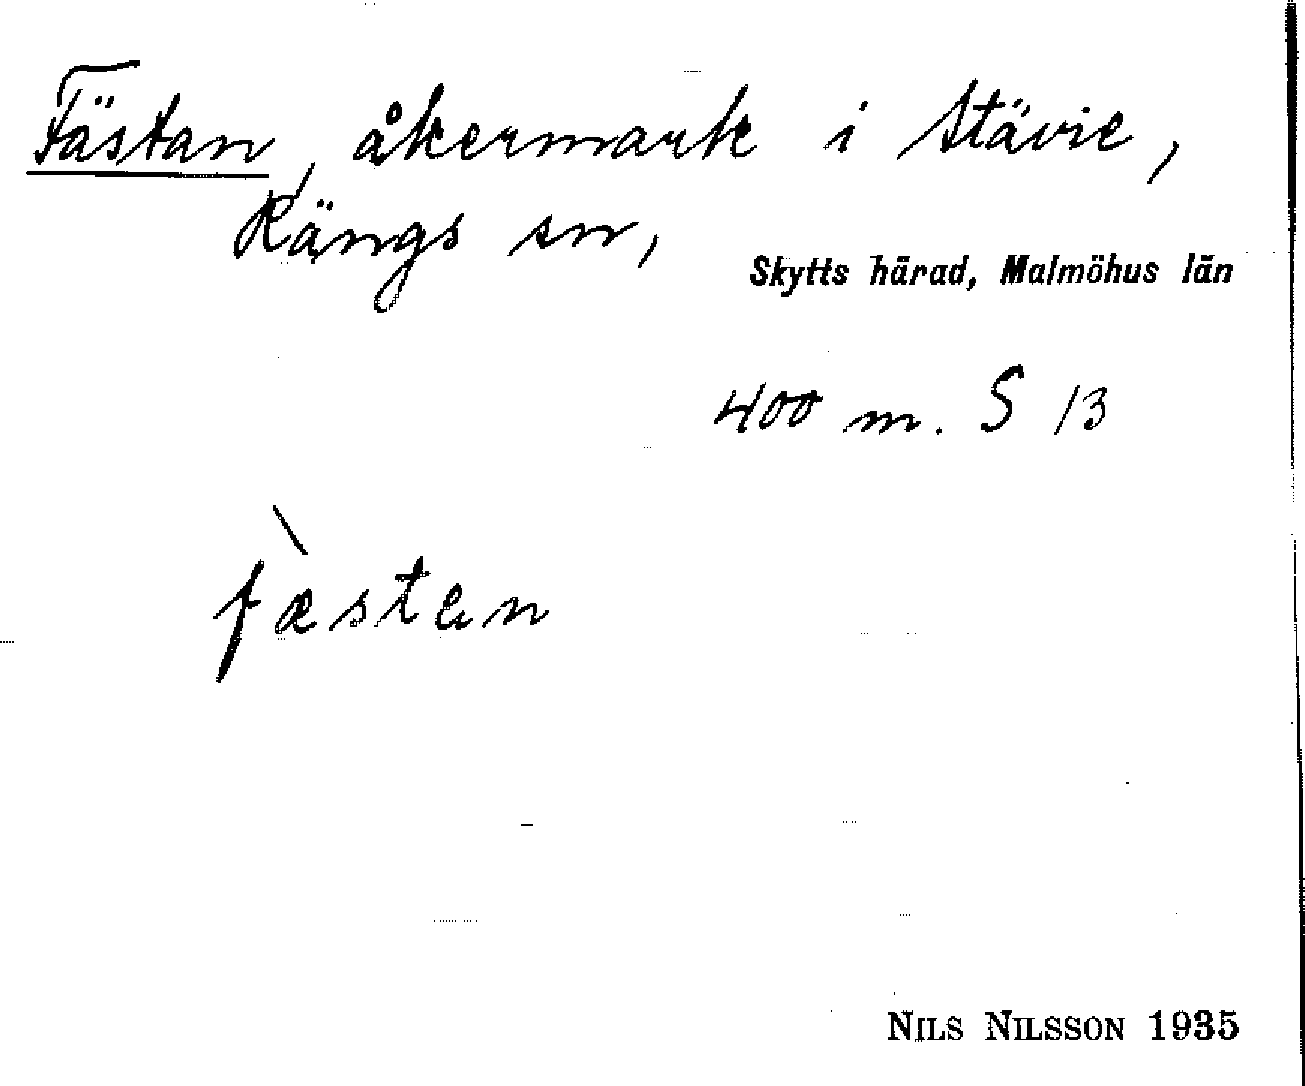 Fästan, åkermark i Stävie,
Rängs sn,
Skytts härad, Malmöhus län
400 m. S 13
fæ̀stan
NILS NILSSON 1935